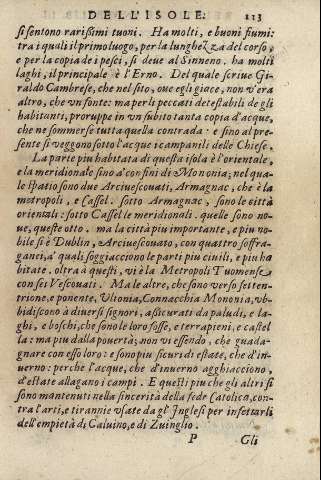 DELL'ISOLE. 113
si sentono rarissimi tuoni. Ha molti, e buoni fiumi:
tra i quali il primoluogo, per la lunghezza del corso,
e per la copia de i pesci, si deue al Sinneno. ha molti
laghi, il principale è l'Erno. Del quale scriue Gi-
raldo Cambrese, che nel sito, oue egli giace, non v'era
altro, che vn fonte: ma per li peccati detestabili de gli
habitanti, proruppe in vn subito tanta copia d'acque,
che ne sommerse tutta quella contrada: e sino al pre-
sente si veggono sotto l'acque i campanili delle Chiese.
La parte piu habitata di questa isola è l'orientale,
e la meridionale sino a' confini di Mononia; nel qua-
le spatio sono due Arciuescouati, Armagnac, che è la
metropoli, e Cassel. sotto Armagnac, sono le città
orientali: sotto Cassel le meridionali. quelle sono no-
ue, queste otto. ma la città piu importante, e piu no-
bile si è Dublin, Arciuescouato, con quattro soffra-
ganei, a' quali soggiacciono le parti piu ciuili, e piu ha
bitate. oltra à questi, vi è la Metropoli Tuomense
con sei Vescouati. Ma le altre, che sono verso setten-
trione, e ponente, Vltonia, Connacchia Mononia, vb-
bidiscono à diuersi signori, assicurati da paludi, e la-
ghi, e boschi, che sono le loro fosse, e terrapieni, e castel
la: ma piu dalla pouertà; non vi essendo, che guada-
gnare con esso loro: e sono piu sicuri di estate, che d'in-
uerno: perche l'acque, che d'inuerno agghiacciono,
d'estate allagano i campi. E questi piu che gli altri si
sono mantenuti nella sincerità della fede Catolica, con-
tra l'arti, e tirannie vsate da gl' Inglesi per infettarli
dell'empietà di Caluino, e di Zuinglio.
P Gli